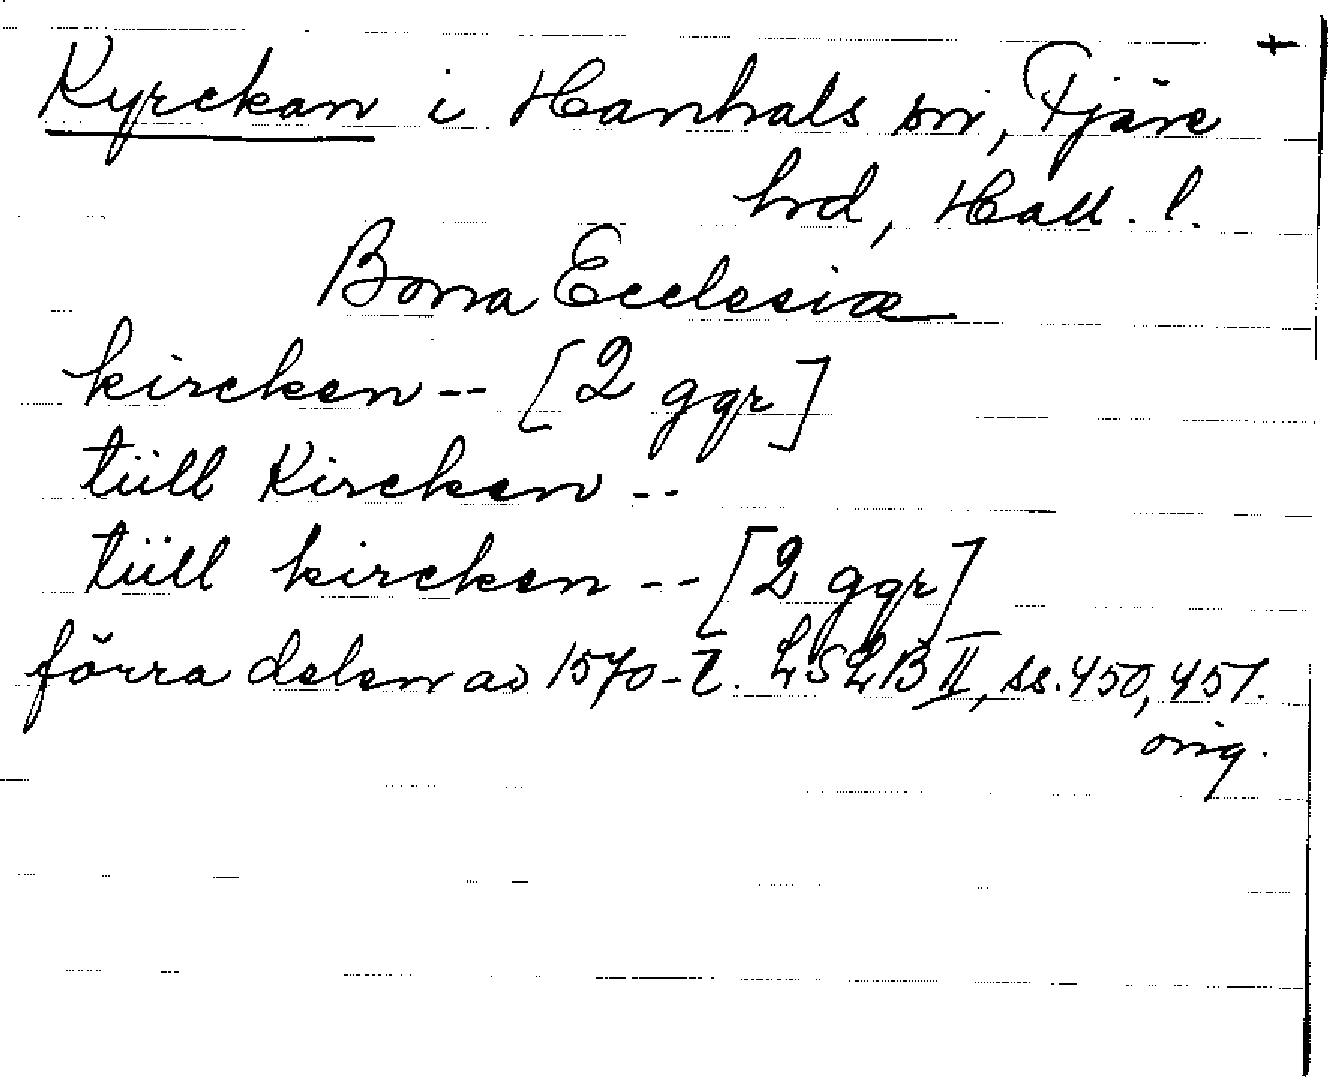 +
Kyrckan i Hanhals sn, Fjäre
hrd, Hall. l.
Bona Ecclesiæ
kircken -- [2 ggr]
tüll Kircken --
tüll kircken -- [2 ggr]
förra delen av 1570-t. LSLB II, ss. 450, 451.
orig.